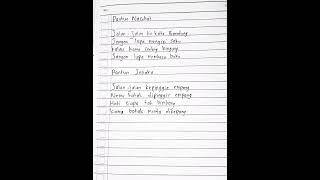 Pantun Nasihat
Jalan jalan ke kota Bandung
Jangan lupa mengisi saku
Kalau kamu sering bingung
Jangan lupa membaca buku
Pantun Jenaka
Jalan jalan kepinggir empang
Nemu katak dipinggir empang
Hati siapa tak bimbang
Kamu botak minta dikepang